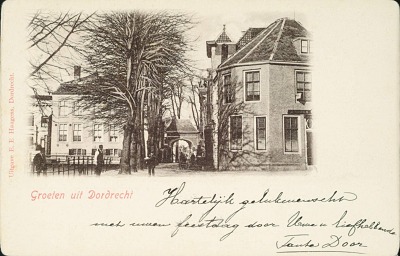 Uitgave F. E. Haagens, Dordrecht.
Groeten uit Dordrecht
Hartelijk gelukgewenscht
met uwen feestdag door Uwe u liefhebbende
Tante Door